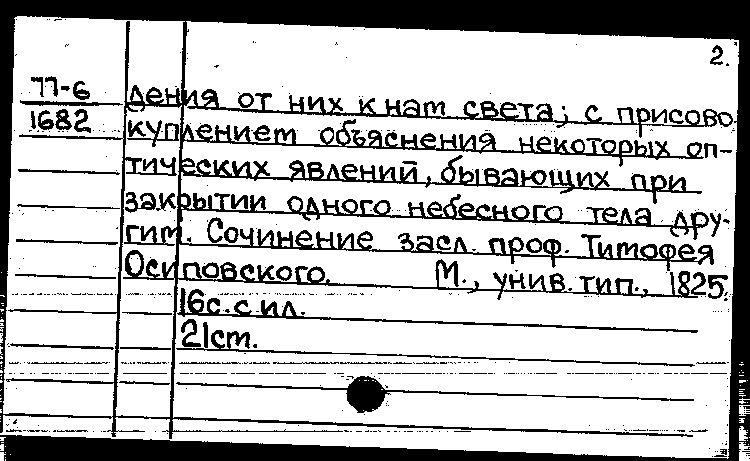 2.
77-6
1682
дения от них к нам света; с присово
куплением объяснения некоторых оп-
тических явлений, бывающих при
закрытии одного небесного тела дру-
гим. Сочинение засл. проф. Тимофея
Осиповского. М., унив. тип., 1825.
16с. с ил.
21см.